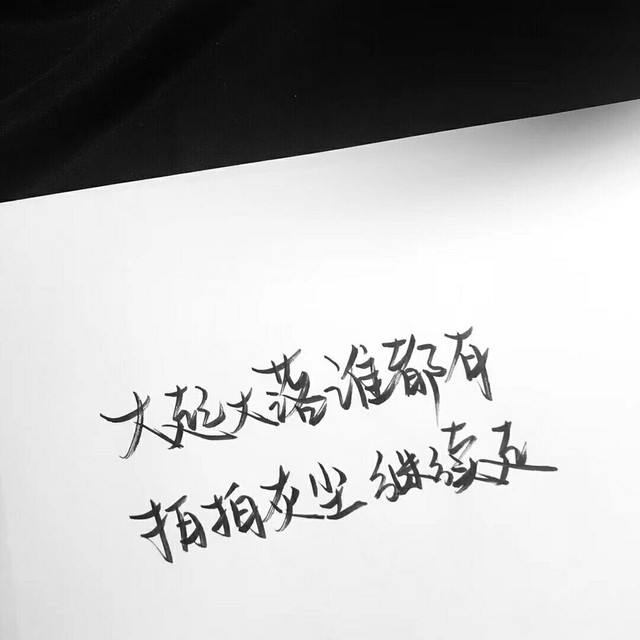 大起大落谁都有
拍拍灰尘继续走